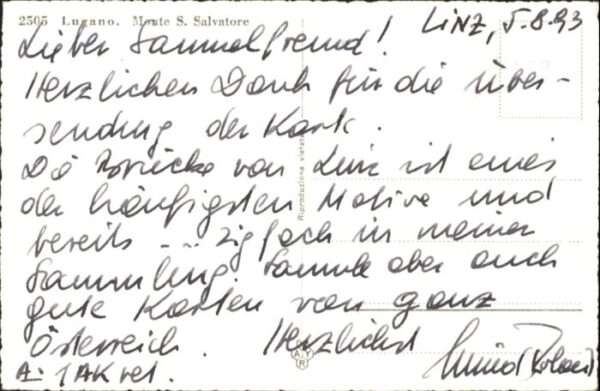 2505 Lugano. Monte S. Salvatore
LINZ, 5.8.93
Lieber Sammelfreund!
Herzlichen Dank für die Über-
sendung der Karte.
Die Brücke von Linz ist eines
der häufigsten Motive und
bereits ... zigfach in meiner
Sammlung. Sammle aber auch
gute Karten von ganz
Österreich. Herzlichst
A: 1 AK ret.
Riproduzione vietata